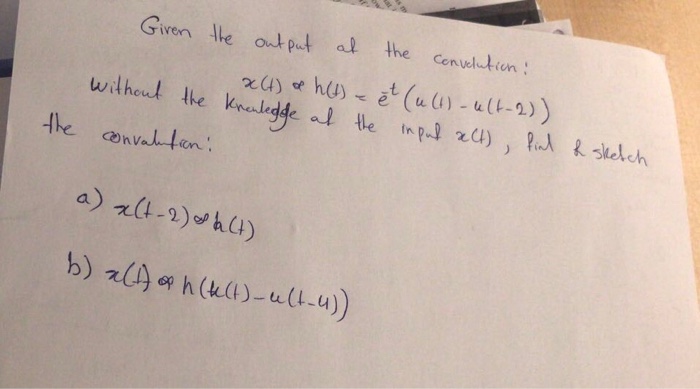 Given the output of the convelution:
x(t) * h(t) = e^-t (u(t) - u(t-2))
without the knowledge of the input x(t), find & sketch
the convalution:
a) x(t-2) * h(t)
b) x(t) * h(u(t) - u(t-4))